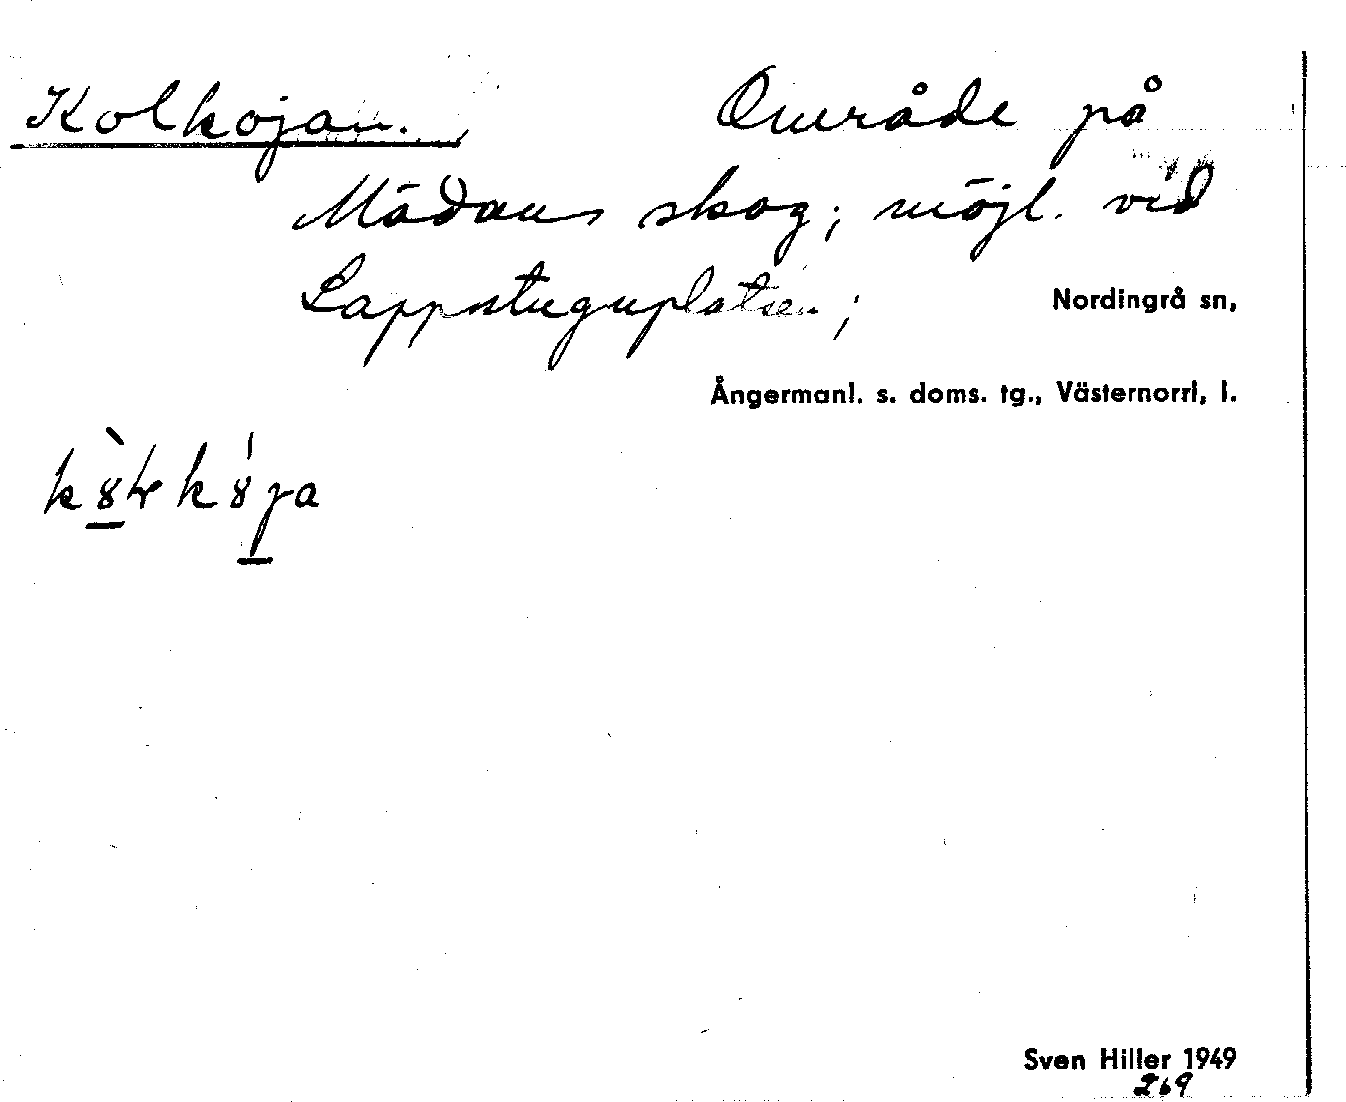 Kolkojan. Område på
Mädans skog; möjl. vid
Lappstuguplatsen;
Nordingrå sn,
Ångermanl. s. doms. tg., Västernorrl, l.
Sven Hiller 1949
269